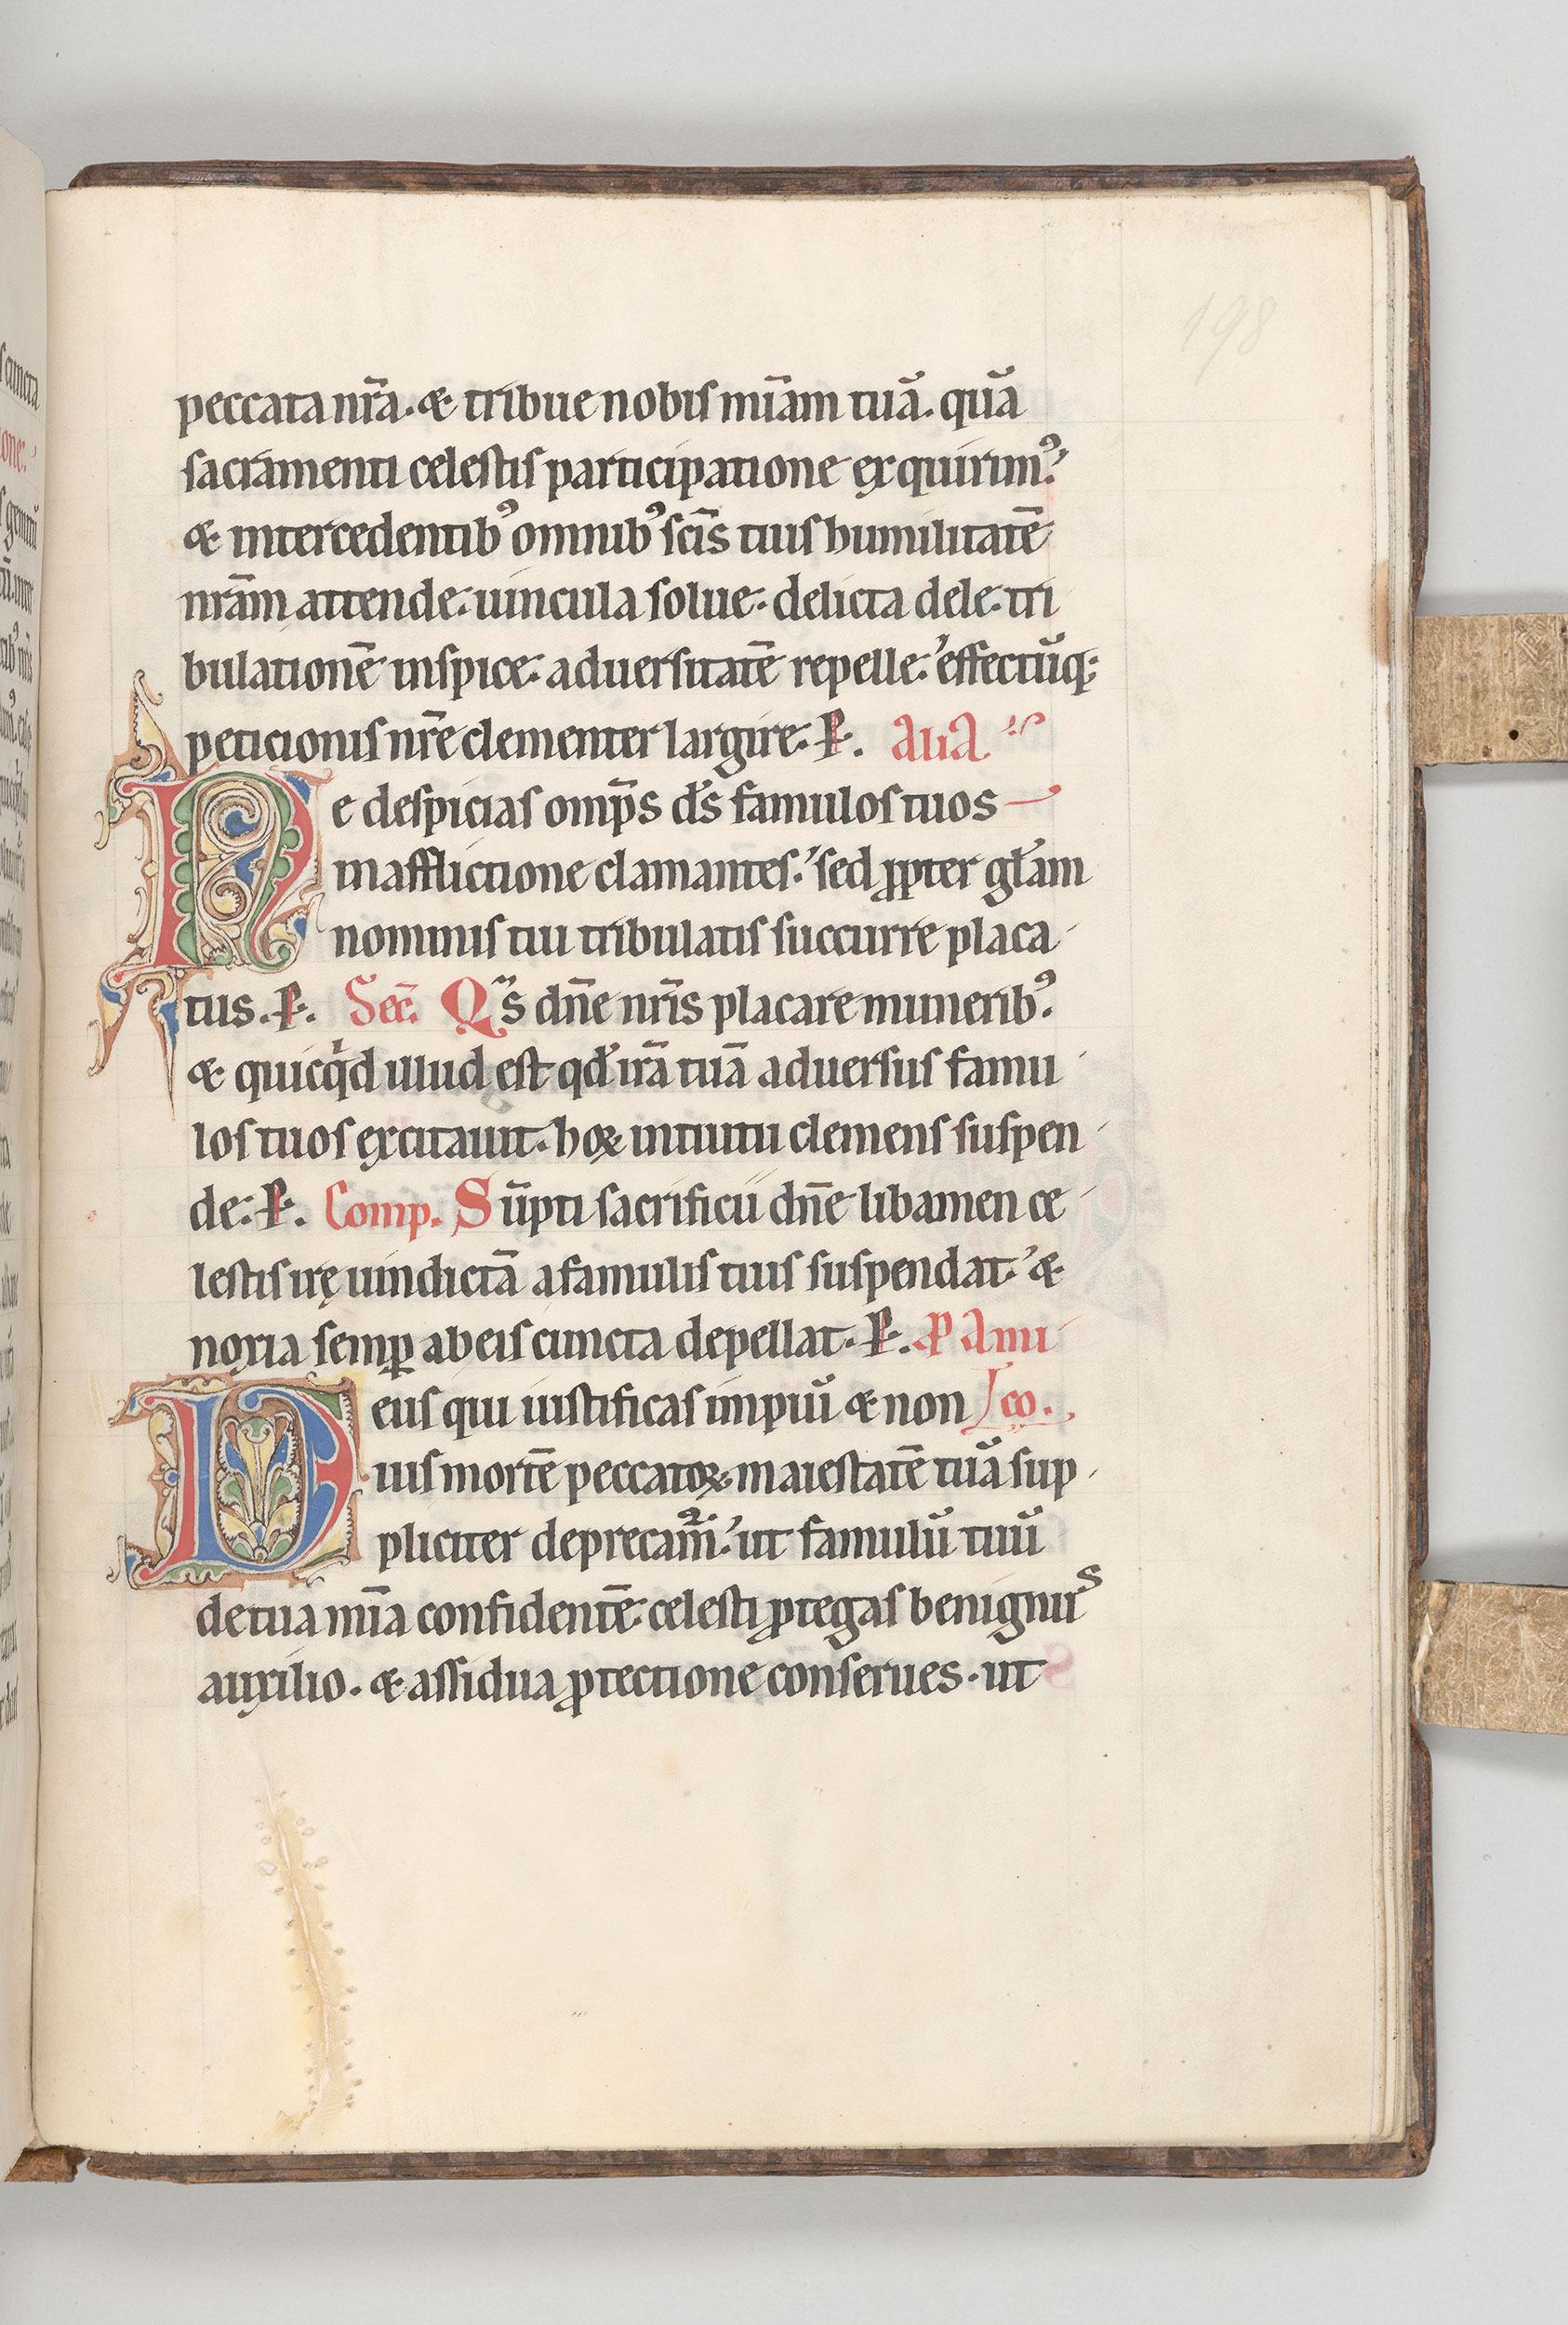 198
peccata nr̄a. & tribue nobis mīam tuā. quā
sacramenti celestis participatione exquirimꝰ.
& intercedentibꝰ omnibꝰ scīs tuis humilitatē
nrām attende. uincula solue. delicta dele. tri
bulationē inspice. aduersitatē repelle. effectūq;
peticionis nrē clementer largire. P. alia
Ne despicias omps̄ ds̄ famulos tuos
in afflictione clamantes. sed ꝓpter gl̄am
nominis tui tribulatis succurre placa
tus. P. Sec̄. Qs̄ dn̄e nrīs placare muneribꝰ.
& quicqͥd illud est qd̄ irā tuā aduersus famu
los tuos excitauit. hoꝝ intuitu clemens suspen
de. P. Comp. Sūpti sacrificii dn̄e libamen ce
lestis irę uindictā a famulis tuis suspendat. &
noxia semꝑ ab eis cuncta depellat. P. P Ami
Deus qui iustificas impiū & non co.
uis mortē peccatoꝝ maiestatē tuā sup
pliciter deprecam̄. ut famulū tuū
de tua mīa confidentē celesti ꝓtegas benignus
auxilio. & assidua ꝓtectione conserues. ut